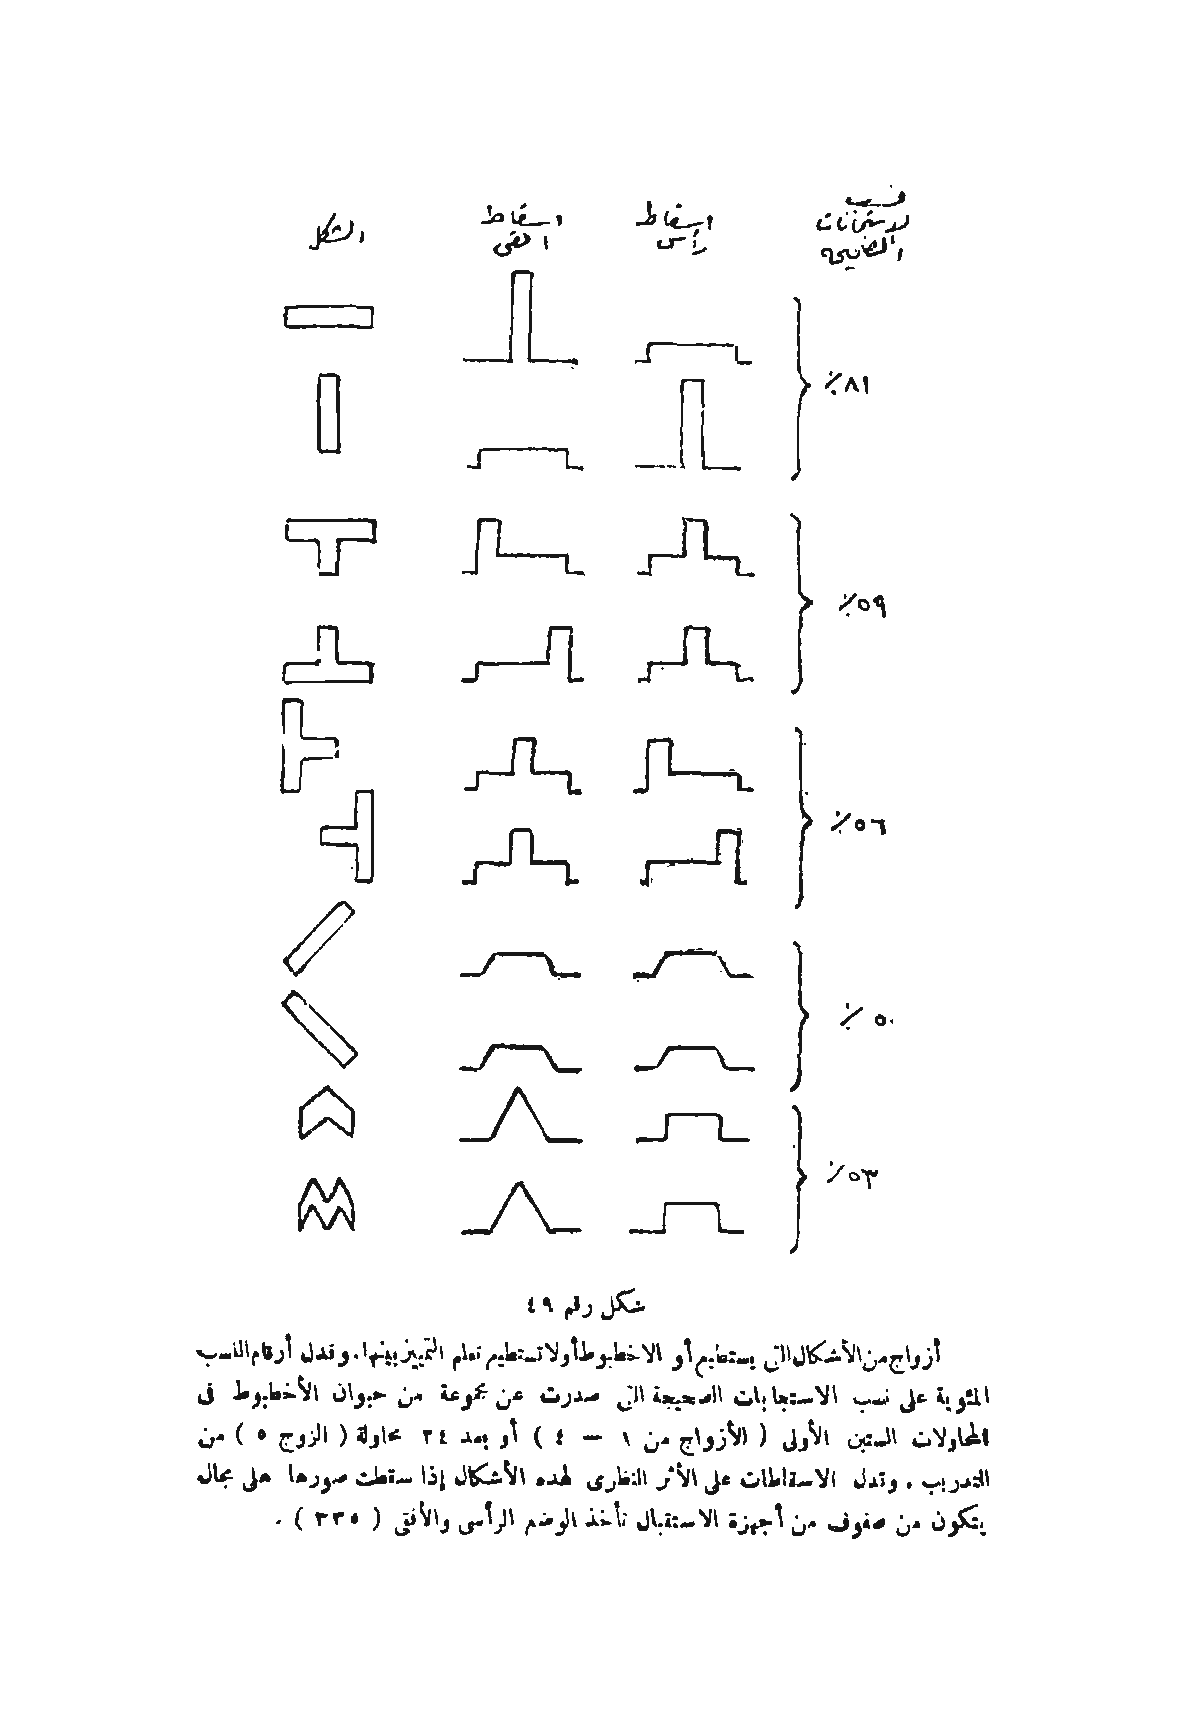 نسب
الاستجابات
الصحيحة
اسقاط
رأسى
اسقاط
افقى
الشكل
٪٨١
٪٥٩
٪٥٦
٪٥٠
٪٥٣
شكل رقم ٤٩
أزواج من الأشكال التى يستطيع أو الاخطبوط أو لا تستطيع تعلم التمييز بينها . وتدل أرقام النسب
المئوية على نسب الاستجابات الصحيحة التى صدرت عن مجموعة من حيوان الأخطبوط فى
المحاولات الستين الأولى ( الأزواج من ١ — ٤ ) أو بعد ٢٤ محاولة ( الزوج ٥ ) من
التدريب . وتدل الاسقاطات على الأثر النظرى لهذه الأشكال إذا سقطت صورها على مجال
يتكون من صفوف من أجهزة الاستقبال تأخذ الوضع الرأسى والأفقى ( ٣٣٥ ) .